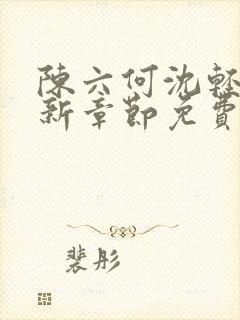 陳六何沈輕
新章節免費
裴彤